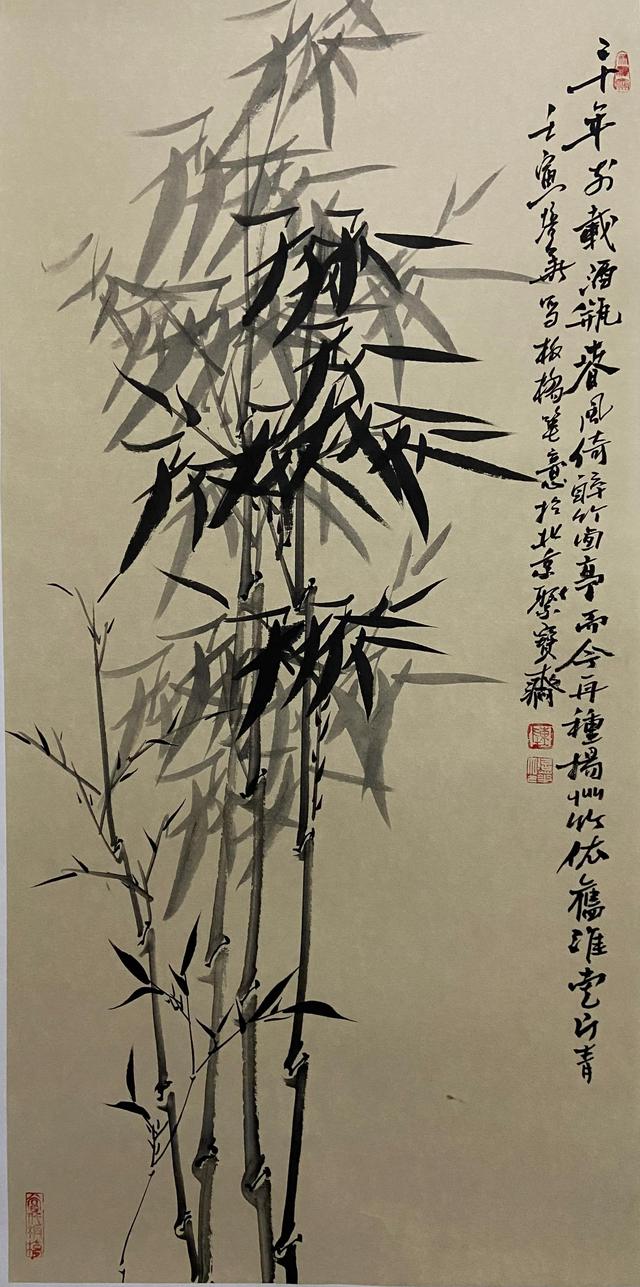 二十年前載酒瓶春風倚醉竹西亭而今再種揚州竹依舊淮南一片青
壬寅 写板橋筆意於北京聚寶齋